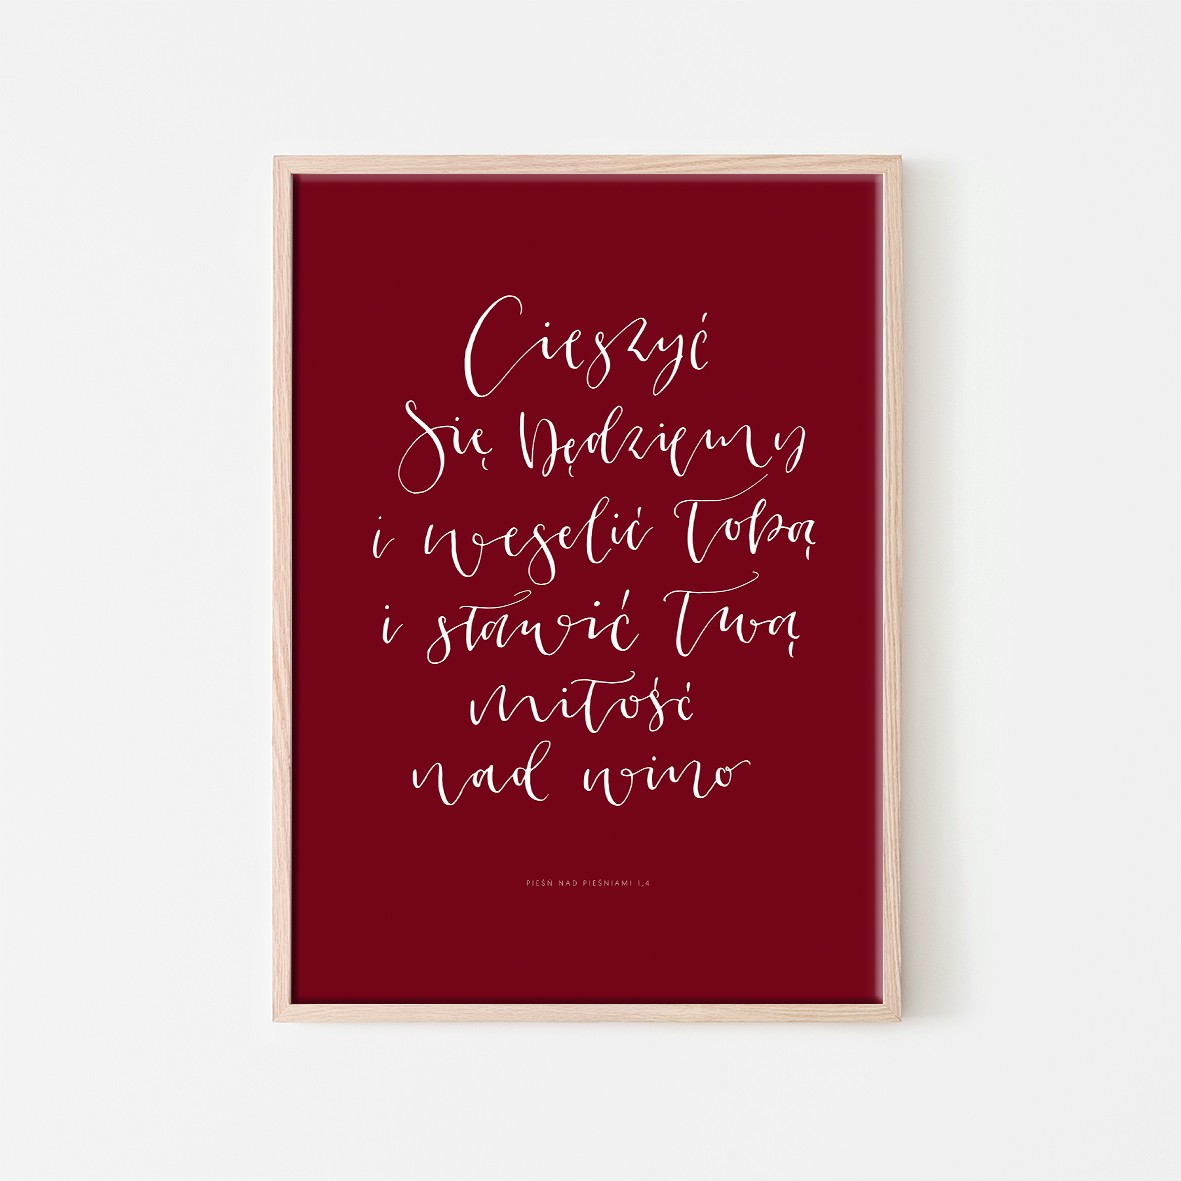 Cieszyć
się będziemy
i weselić Tobą
i sławić Twą
miłość
nad wino
PIEŚŃ NAD PIEŚNIAMI 1,4